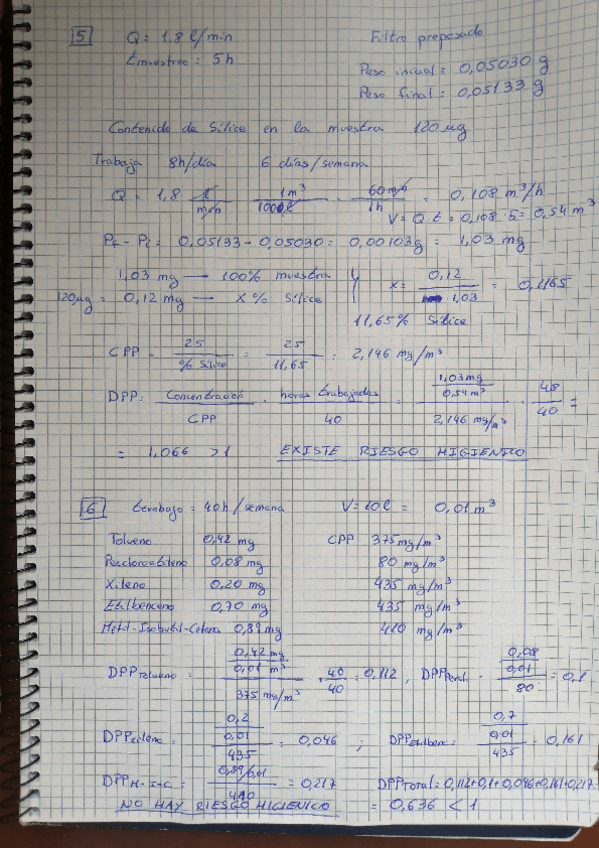 5 Q = 1,8 l/min Filtro prepesado
tmuestreo = 5h Peso inicial = 0,05030 g
Peso final = 0,05133 g
Contenido de Sílice en la muestra 120 µg
Trabaja 8h/día 6 días/semana
Q = 1,8 l/min · 1m³/1000l · 60min/1h = 0,108 m³/h
V = Q·t = 0,108·5 = 0,54 m³
Pf - Pi = 0,05133 - 0,05030 = 0,00103g = 1,03 mg
1,03 mg → 100% muestra
120µg = 0,12 mg → X% Sílice
x = 0,12 / 1,03 = 0,1165
11,65% Sílice
CPP = 25 / % Sílice = 25 / 11,65 = 2,146 mg/m³
DPP = Concentración / CPP · horas trabajadas / 40 = (1,03mg / 0,54m³) / 2,146 mg/m³ · 48/40 =
= 1,066 > 1 EXISTE RIESGO HIGIENICO
6 ttrabajo = 40h/semana V = 10l = 0,01 m³
Tolueno 0,42 mg CPP 375 mg/m³
Percloroetileno 0,08 mg 80 mg/m³
Xileno 0,20 mg 435 mg/m³
Etilbenceno 0,70 mg 435 mg/m³
Metil-Isobutil-Cetona 0,89 mg 410 mg/m³
DPPtolueno = (0,42 mg / 0,01 m³) / 375 mg/m³ · 40/40 = 0,112 , DPPPercl. = (0,08 / 0,01) / 80 = 0,1
DPPxileno = (0,2 / 0,01) / 435 = 0,046 ; DPPetilben = (0,7 / 0,01) / 435 = 0,161
DPPM-I-C = (0,89/0,01) / 410 = 0,217 DPPTotal = 0,112+0,1+0,046+0,161+0,217
NO HAY RIESGO HIGIENICO = 0,636 < 1